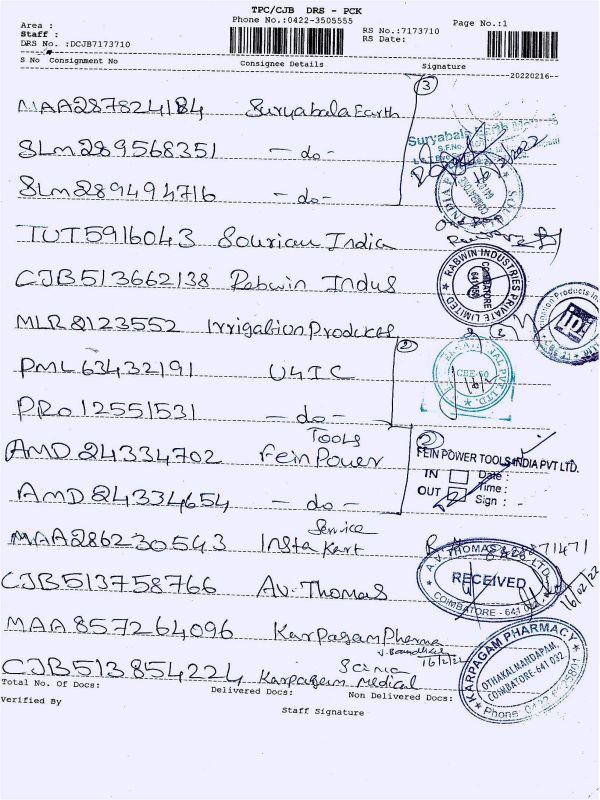 TPC/CJB DRS - PCK
Area :
Phone No.:0422-3505555
Page No.:1
Staff :
RS No.:7173710
DRS No. :DCJB7173710
RS Date:
S No Consignment No Consignee Details Signature
20220216
3
MAA287824184 Suryabala Earth
SLM289568351 - do -
SLM289494716 - do -
TUT5916043 Souriau India
CJB513662138 Rabwin Indus
RABWIN INDUSTRIES PRIVATE LIMITED
COIMBATORE
MLR8123552 Irrigation Products
PML63432191 U4IC
CBE-60
PRO12551531 - do -
Tools
AMD24334702 Fein Power
2
FEIN POWER TOOLS INDIA PVT LTD.
IN Date :
OUT Time :
Sign : -
AMD24334654 - do -
Service
MAA286230543 Insta Kart
CJB513758766 Av. Thomas
A.V. THOMAS LTD.
RECEIVED
COIMBATORE - 641
16/02/22
MAA857264096 Karpagam Pharma
16/2/22
CJB513854224 Karpagam Medical
KARPAGAM PHARMACY
OTHAKALMANDAPAM,
COIMBATORE-641 032.
Phone: 0422
Total No. Of Docs: Delivered Docs: Non Delivered Docs:
Verified By
Staff Signature